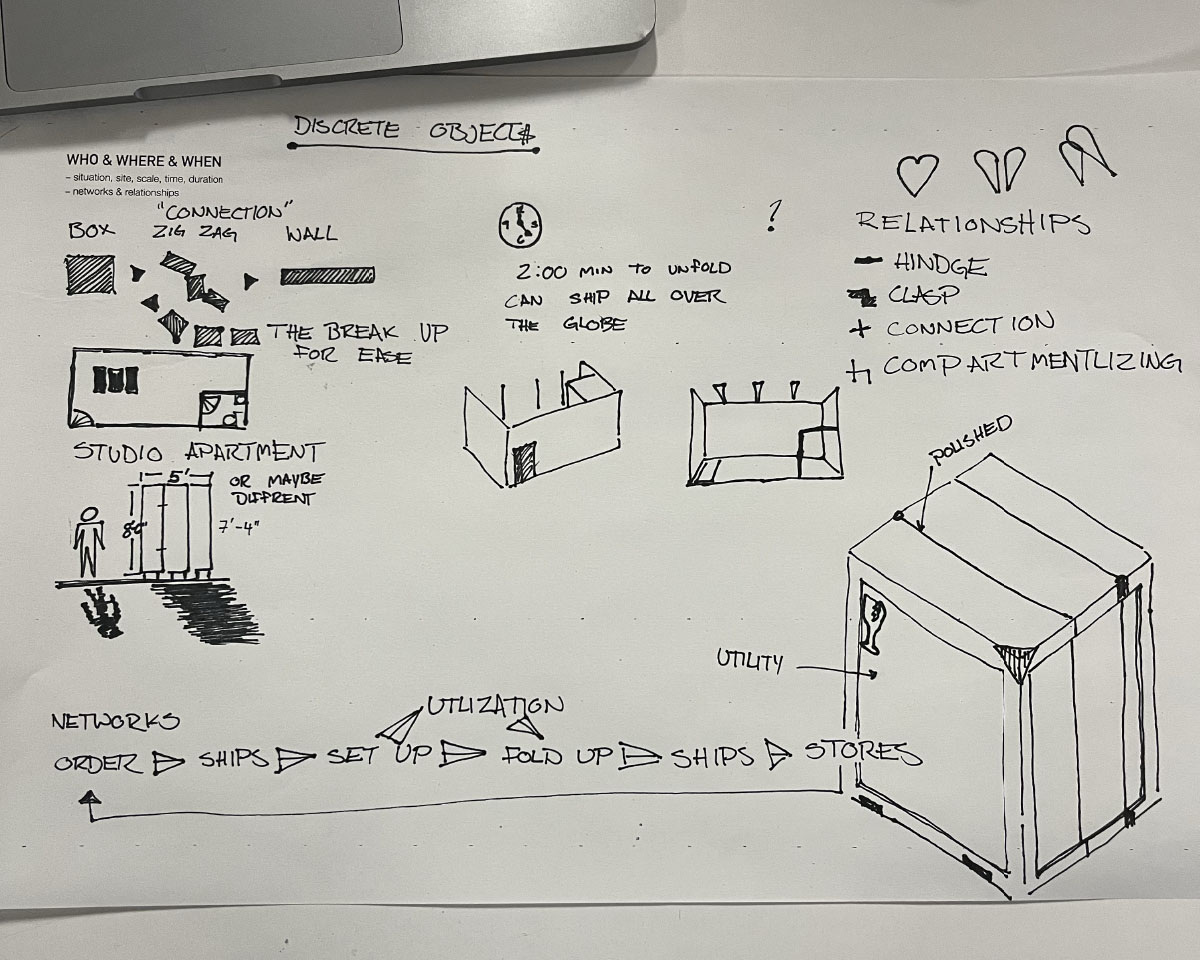 DISCRETE OBJECT$
WHO & WHERE & WHEN
– situation, site, scale, time, duration
– networks & relationships
"CONNECTION"
BOX ZIG ZAG WALL
THE BREAK UP
FOR EASE
STUDIO APARTMENT
5'
OR MAYBE
DIFFRENT
7'-4"
2:00 MIN TO UNFOLD
CAN SHIP ALL OVER
THE GLOBE
?
RELATIONSHIPS
HINDGE
CLASP
CONNECTION
COMPARTMENTLIZING
POLISHED
UTILITY
NETWORKS
UTLIZATION
ORDER SHIPS SET UP FOLD UP SHIPS STORES